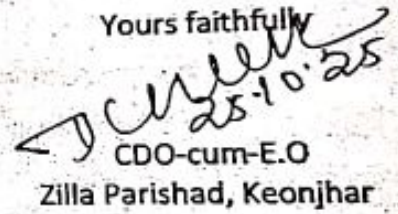 Yours faithfully
25.10.25
CDO-cum-E.O
Zilla Parishad, Keonjhar